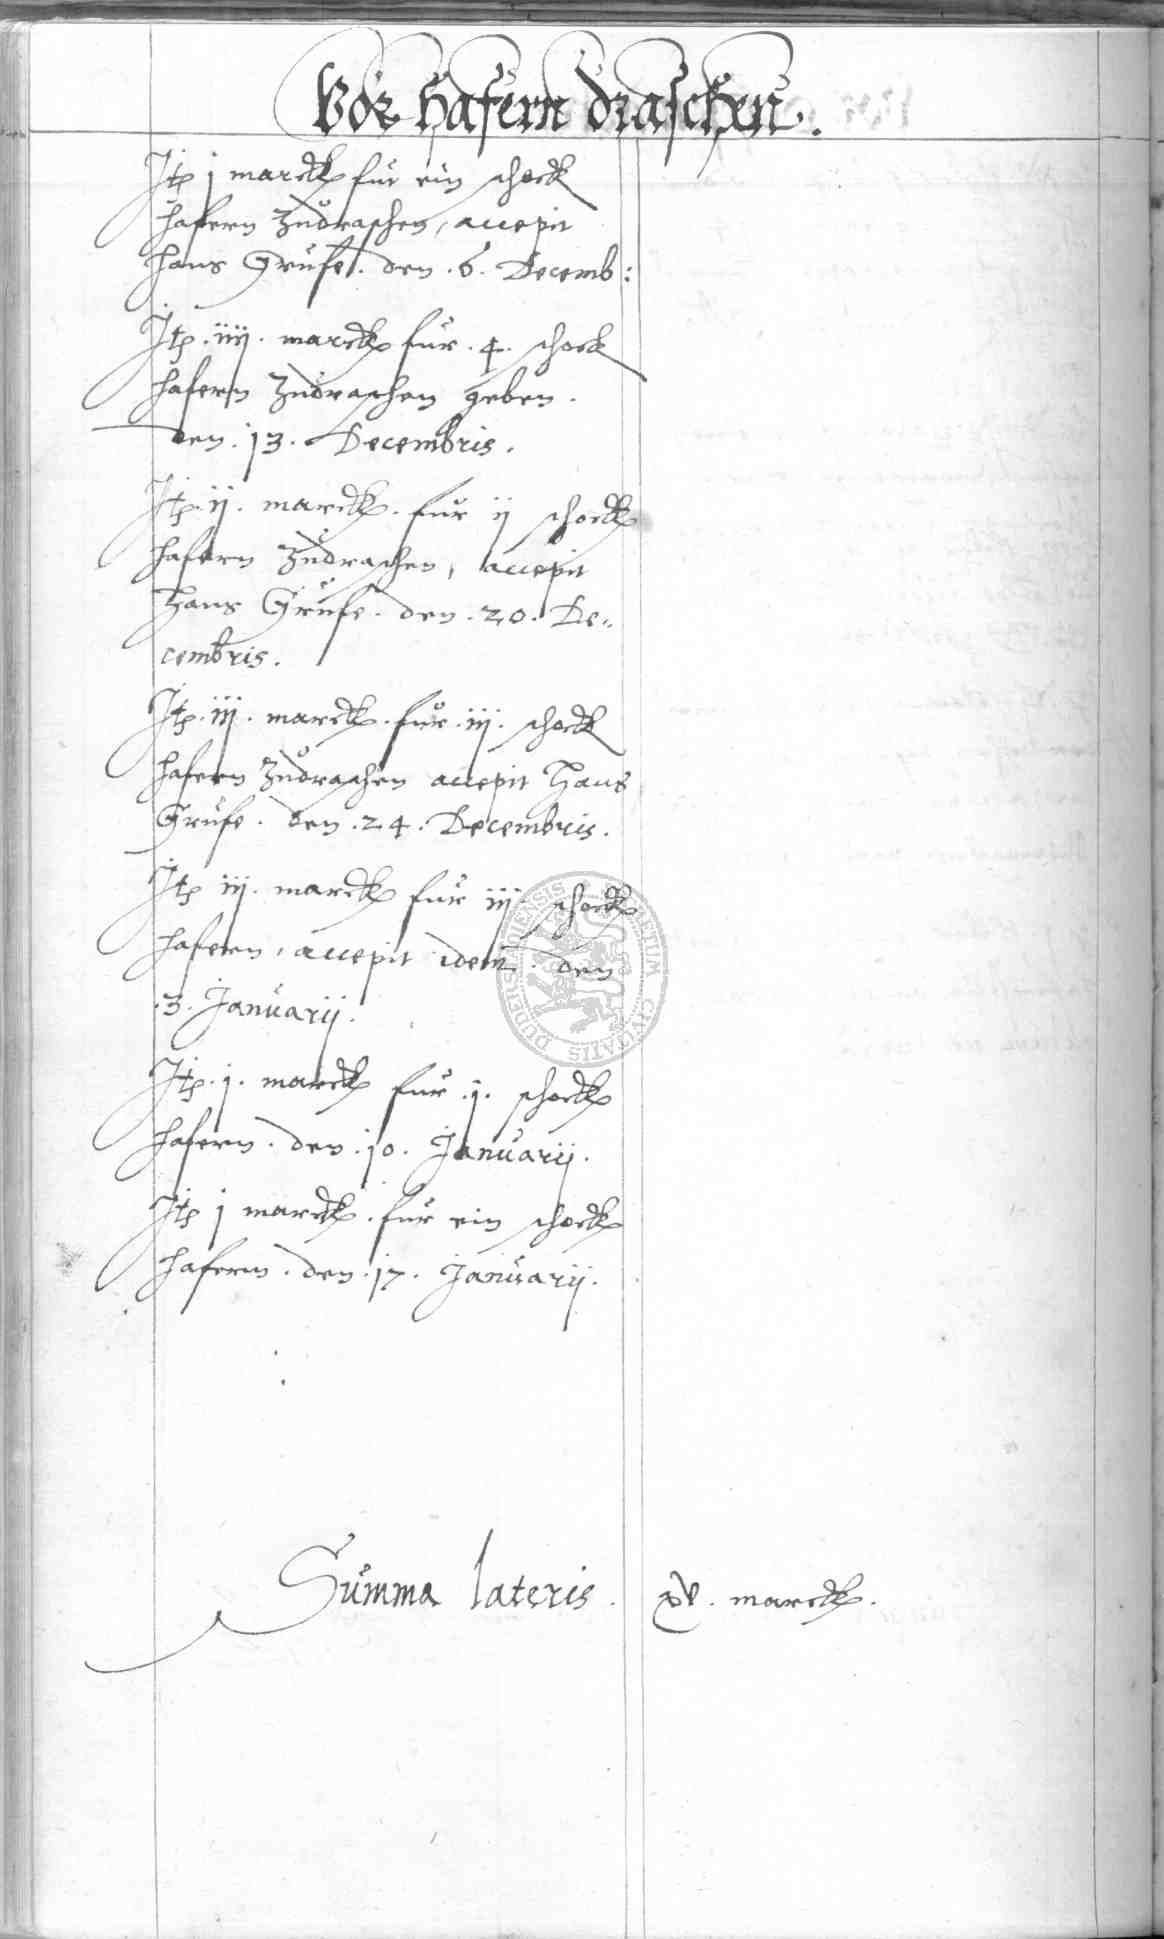 Vor hafern draschen.
Itp j marck fur ein schock
hafern zudraschen, accepit
Hans Grufe. den .6. Decemb:
Itp .iiij. marck fur .4. schock
hafern zudraschen geben.
den .13. Decembris.
Itp .ij. marck. fur ij schock
hafern zudraschen, accepit
Hans Grufe. den .20. De„
cembris.
Itp .iij. marck. fur .iij. schock
hafern zudraschen accepit Hans
Grufe. den .24. Decembris.
Itp iij. marck fur iij. schock
hafern, accepit idem. den
.3. Januarij.
Itp .j. marck fur .j. schock
hafern. den .10. Januarij.
Itp j marck. fur ein schock
hafern. den .17. Januarij.
Summa lateris. xv. marck.
DUDERSTADIENSIS CIVITATIS